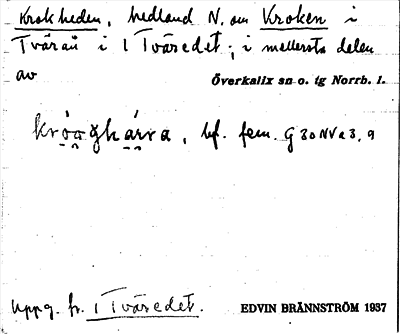 Krokheden, hedland N. om Kroken i
Tvärån i 1 Tväredet; i mellersta delen
av Överkalix sn o. tg Norrb. l.
bf. fem. G 30 NV a 3, 9
Uppg. fr. 1 Tväredet. EDVIN BRÄNNSTRÖM 1937